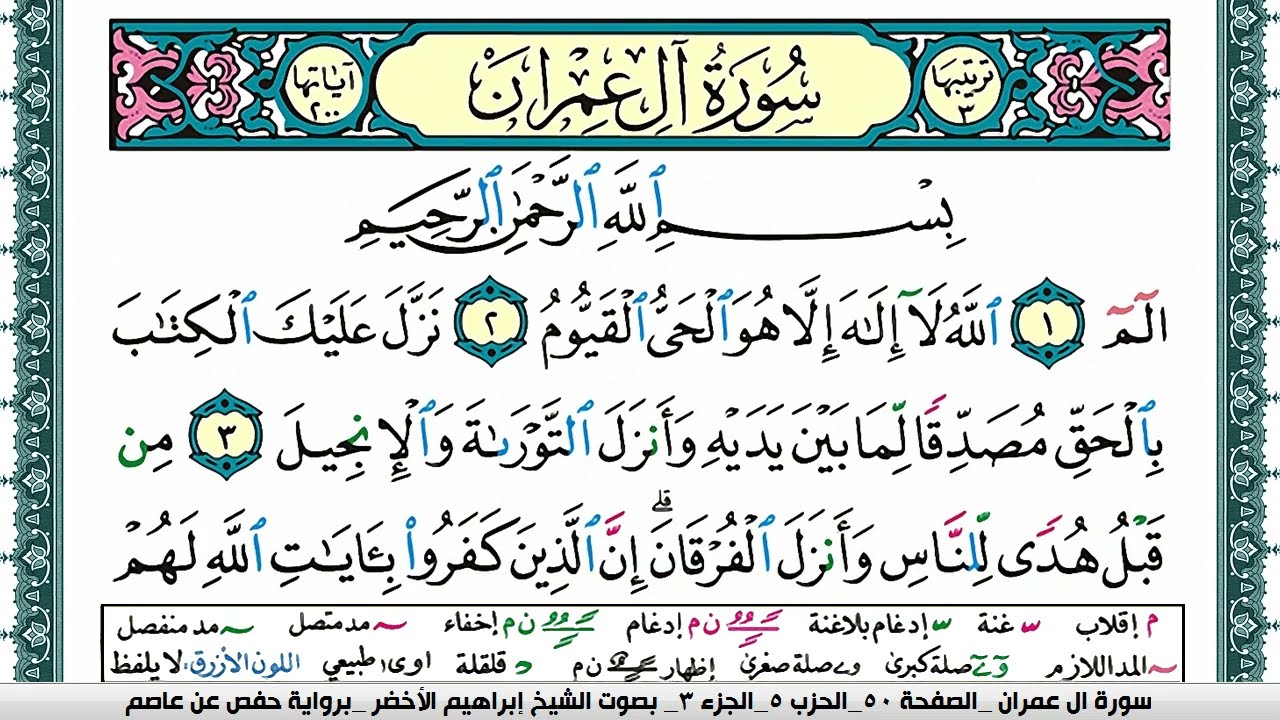 ترتيبها ٣ سُورَةُ آلِ عِمْرَان آياتها ٢٠٠
بِسْمِ ٱللَّهِ ٱلرَّحْمَٰنِ ٱلرَّحِيمِ
الٓمٓ ١ ٱللَّهُ لَآ إِلَٰهَ إِلَّا هُوَ ٱلْحَىُّ ٱلْقَيُّومُ ٢ نَزَّلَ عَلَيْكَ ٱلْكِتَٰبَ
بِٱلْحَقِّ مُصَدِّقًا لِّمَا بَيْنَ يَدَيْهِ وَأَنزَلَ ٱلتَّوْرَىٰةَ وَٱلْإِنجِيلَ ٣ مِن
قَبْلُ هُدًى لِّلنَّاسِ وَأَنزَلَ ٱلْفُرْقَانَ ۗ إِنَّ ٱلَّذِينَ كَفَرُوا۟ بِـَٔايَٰتِ ٱللَّهِ لَهُمْ
م إقلاب غنة إدغام بلاغنة ن م إدغام ن م إخفاء مد متصل مد منفصل
المد اللازم صلة كبرى صلة صغرى إظهار ن م قلقلة د اوى ا طبيعي اللون الأزرق: لا يلفظ
سورة ال عمران _الصفحة ٥٠_الحزب ٥_الجزء ٣_ بصوت الشيخ إبراهيم الأخضر _برواية حفص عن عاصم